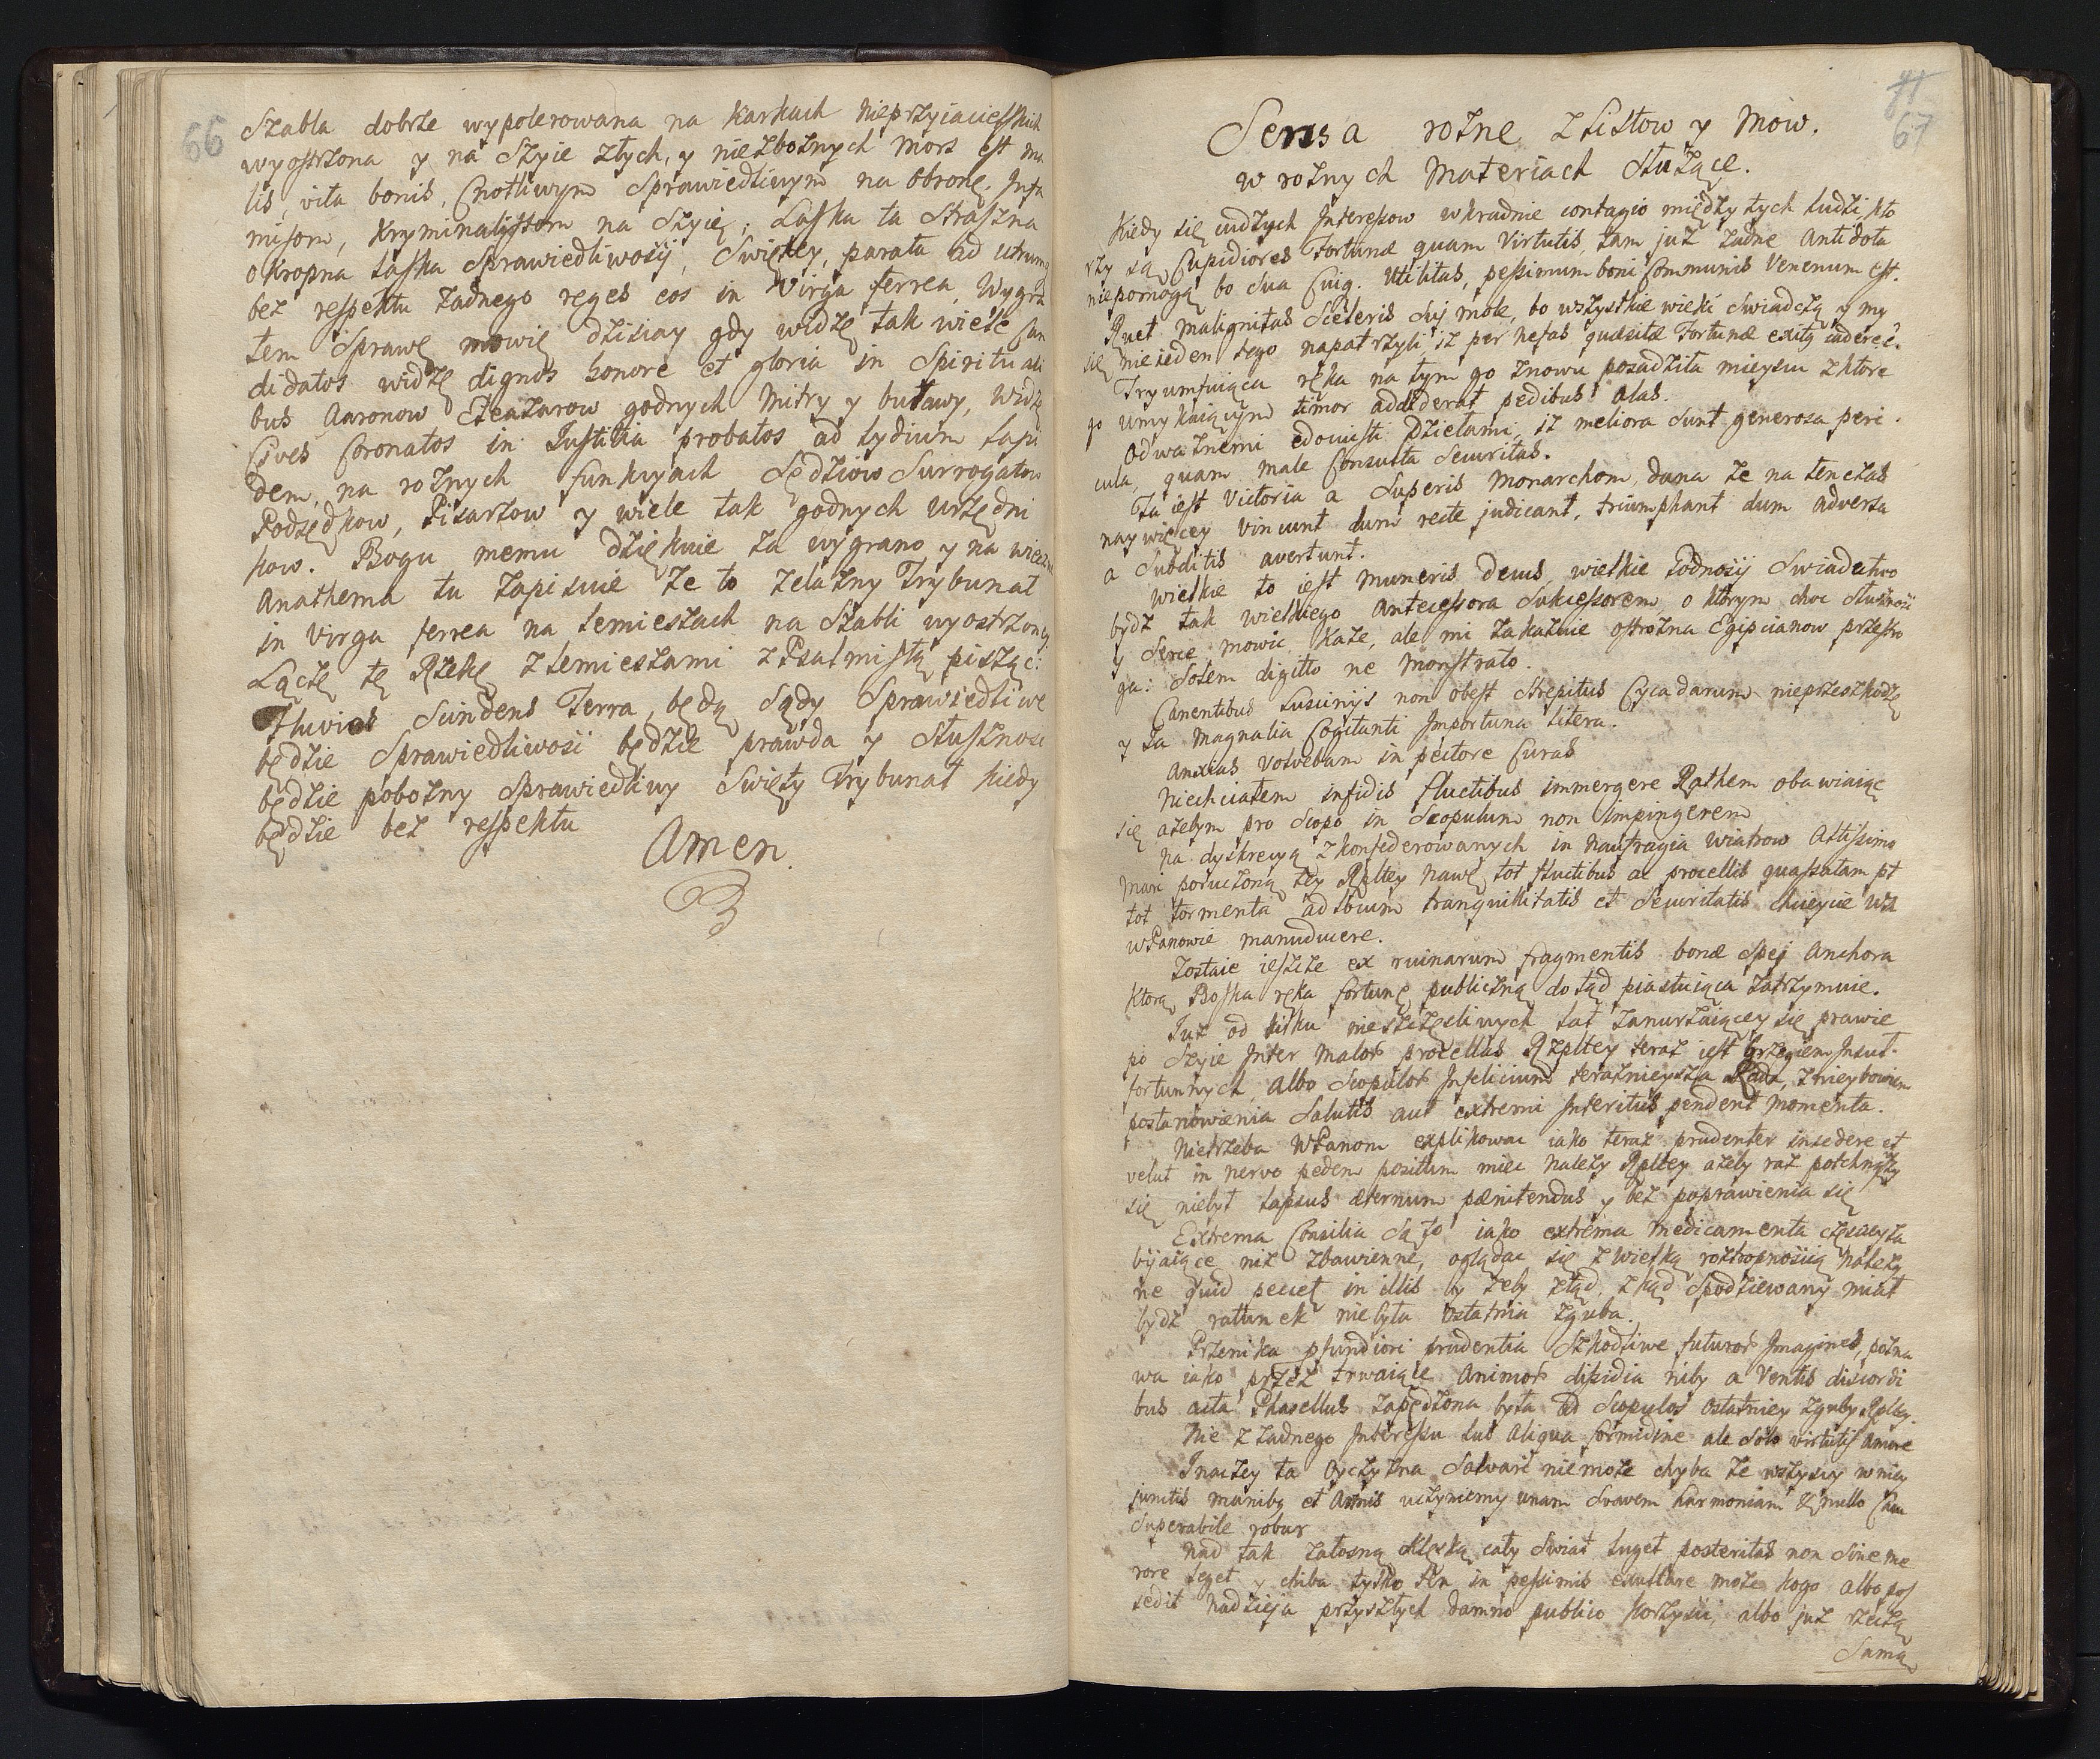 66
Szabla dobrze wypolerowana na Karkach Nieprzyiacielskich
wyostrzona y na Szyie złych, y niezbożnych Mors est ma
lis, vita bonis, Cnotliwym Sprawiedliwym na Obronę. Infa
misom, Kryminalistom na Szyię; Laska ta Straszna
okropna Laska Sprawiedliwosci, Swiętey, parata ad utrumq
bez respektu żadnego reges eos in Virga ferrea, Wygra
tem Sprawę mowię dzisiay gdy widzę tak wiele Can
didatos widzę dignos honore et gloria in Spirituali
bus Aaronow Eleazarow godnych Mitry y buławy, Widzę
Cives Coronatos in Iustitia probatos ad lydium lapi
dem, na rożnych funkcyach Sędziow Surrogatow
Podsędkow, Pisarzow y wiele tak godnych urzędni
kow. Bogu memu dziękuie za wygrano y na wieczn
Anathema tu zapisuie że to żelazny Trybunał
in Virga ferrea na Lemieszach na Szabli wyostrzoney
Łączę tę Rzekę z Lemieszami z Psalmistą pisząc:
Fluvios Scindens Terra, będą Sądy Sprawiedliwe
będzie Sprawiedliwosć będzie prawda y Słusznosc
będzie pobożny Sprawiedliwy Swięty Trybunał kiedy
będzie bez respektu
Amen.
71
67
Sensa rożne z Listow y Mow.
w rożnych Materiach Służące.
Kiedy się cudzych Interessow wkradnie contagio między tych ludzi kto
rzy są Cupidiores Fortunæ quam Virtutis, tam już żadne Antidota
niepomogą bo Sua Cuiq. Utilitas, pessimum boni Communis Venenum est.
Ruet malignitas Sceleris Suj mole, bo wszystkie wieki Swiadczą y my
się nieieden tego napatrzyli iż per nefas quæsitæ Fortunæ exitq cadere.
Tryumfuiąca ręka na tym go znowu posadziła mieyscu z ktore
go umykaiącym timor addiderat pedibus Alas.
Odważnemi edocuisti Dziełami iż meliora sunt generosa peri
cula, quam male Consulta Securitas.
Ta iest Victoria a Superis Monarchom dana że na tenczas
naywięcey Vincunt dum recte judicant, triumphant dum adversa
a Subditis avertunt.
Wielkie to iest Muneris Decus, wielkie Godnosci Swiadectwo
bydź tak wielkiego Antecessora Sukcessorem, o ktorym choc Słusznosc
y Serce mowic każe, ale mi zakazuie ostrożna Egipcianow przestro
ga: Solem digitto ne Monstrato.
Canentibus Lusciniis non obest Strepitus Cycadarum nieprzeszkodzę
y Ja Magnalia Cogitanti Importuna litera.
Anxias volvebam in pectore Curas
Niechciałem infidis fluctibus immergere Rathem obawiaiąc
się ażebym pro Scopo in Scopulum non Impingerem
Na dyskrecyą zkonfederowanych in Naufragia Wiatrow Altissimo
Mari poruczoną tey Rpltey Nawę, tot fluctibus ac procellis quassatam pt
tot tormenta ad Suum tranquillitatis et Securitatis chcieycie WM
WPanowie manuducere.
Zostaie ieszcze ex ruinarum fragmentis bonæ Spej Anchora
Ktorą Boska ręka fortunę publiczną dotąd piastuiąca zatrzymuie.
Już od kilku nieszczęsliwych lat zanurzaiącey się prawie
po Szyie Inter Malor procellas Rzpltey teraz iest brzegiem Insul.
fortunnych albo Scopulor Infelicium teraznieysza Rada, z niey bowiem
postanowienia Salutis aut extremi Interitus pendent Momenta.
Nietrzeba WPanom explikowac iako teraz prudenter insedere et
velut in nervo pedem positum miec należy Rpltey ażeby raz potchnąwszy
się niebył lapsus æternum pænitendus y bez poprawienia się
Extrema Consilia są to iako extrema medicamenta częsciey za
biiaiące niż zbawienne, oglądac się z wielką rostropnoscią należy
ne quid peccet in illis by żeby ztąd, zkąd Spodziewany miał
bydź rattunek niebyła ostatnia zguba.
Przenika pfundiori prudentia Szkodliwe futuror Imagines, pozna
wa iako przez trwaiące Animor dissidia niby a Ventis discordi
bus acta Phasellus zapędzona była ad Scopulos ostatniey zguby Rpltey.
Nie z żadnego Interessu lub aliqua formidine ale Solo virtutis amore
Inaczey ta Oyczyzna Salvari niemoże chyba że wszyscy w niey
junctis manibq et Armis uczyniemy unam Suavem harmoniam et nullo Casu
Superabile robur
Nad tak żałosną klęską cały Swiat luget posteritas non Sine me
rore leget y chiba tylko ten in pessimis exultare może kogo albo pos
sedit nadzieja przyszłych damno publico korzysci, albo już rzeczą
Samą